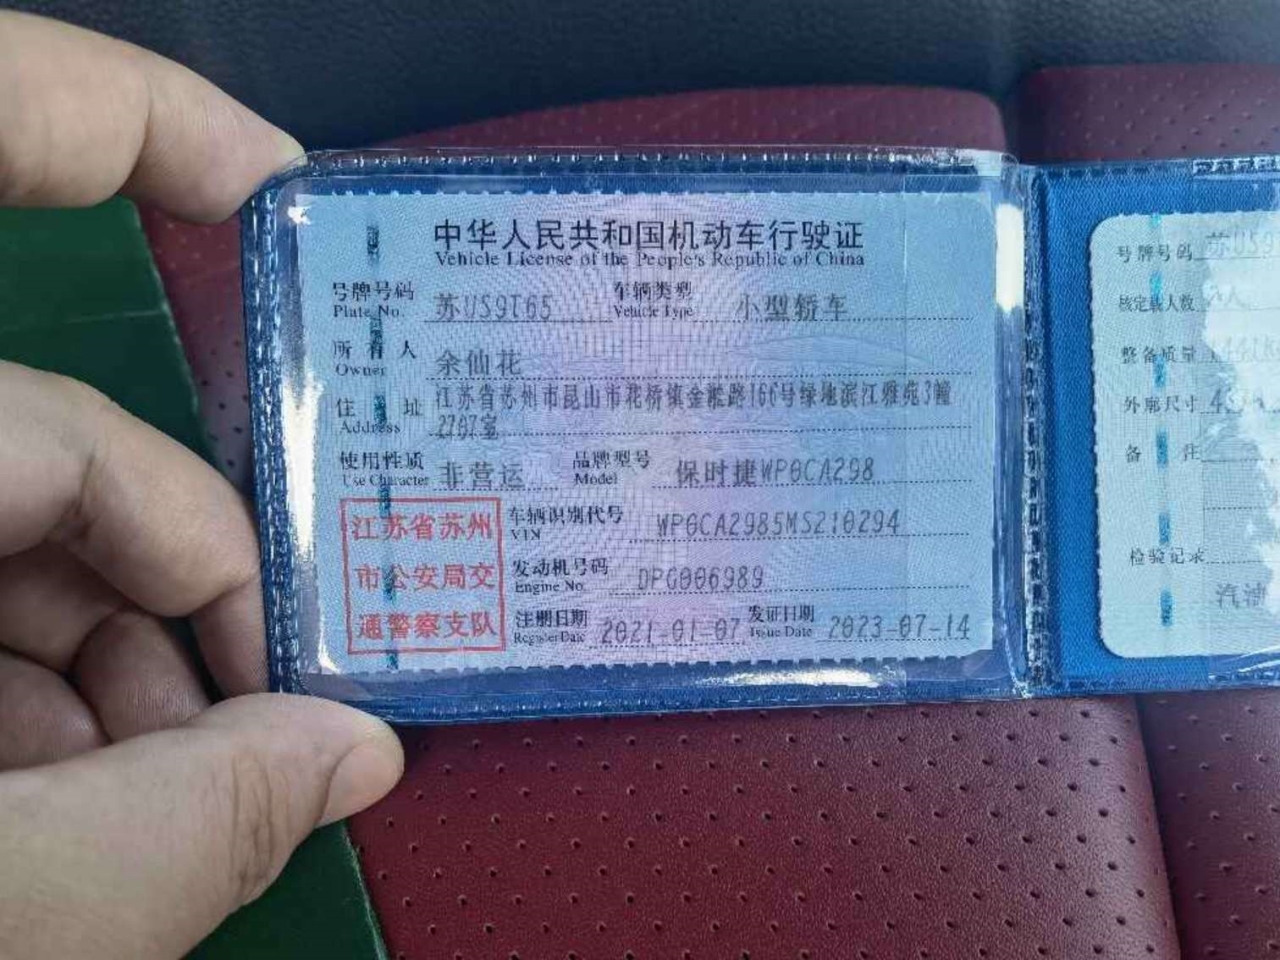 中华人民共和国机动车行驶证
Vehicle License of the People's Republic of China
号牌号码 苏US9T65 车辆类型 小型轿车
Plate No. Vehicle Type
所有人 余仙花
Owner
住址 江苏省苏州市昆山市花桥镇金淞路166号绿地滨江雅苑3幢
Address 2707室
使用性质 非营运 品牌型号 保时捷WP0CA298
Use Character Model
江苏省苏州
市公安局交
通警察支队
车辆识别代号 WP0CA2985MS210294
VIN
发动机号码 DPG006989
Engine No.
注册日期 2021-01-07 发证日期 2023-07-14
Register Date Issue Date
号牌号码 苏US9
核定载人数
整备质量
外廓尺寸
备注
检验记录
汽油